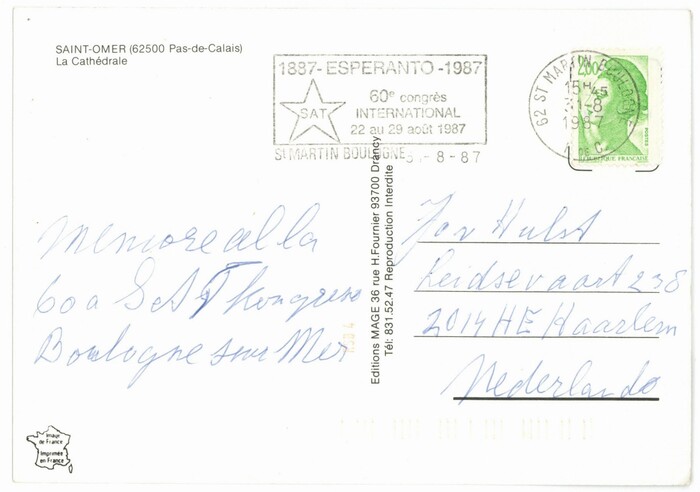 SAINT-OMER (62500 Pas-de-Calais)
La Cathédrale
1887-ESPERANTO-1987
SAT
60e congrès
INTERNATIONAL
22 au 29 août 1987
St MARTIN BOULOGNE 31-8-87
62 ST MARTIN BOULOGNE
15H45
31-8
1987
P. DE C.
2,00
POSTES
RÉPUBLIQUE FRANÇAISE
Editions MAGE 36 rue H.Fournier 93700 Drancy
Tél: 831.52.47 Reproduction Interdite
Memore al la
60a SAT Kongreso
Boulogne sur Mer
Jan Hulst
Leidsevaart 238
2014 HE Haarlem
Nederlando
Image
de France
Imprimée
en France